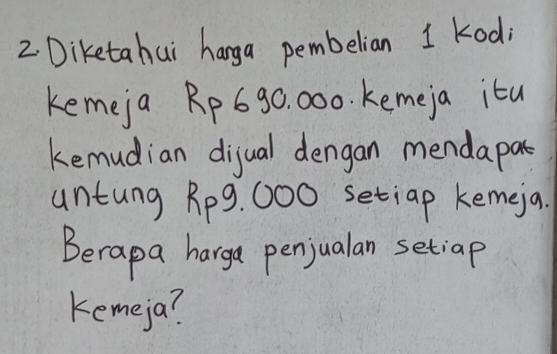 2. Diketahui harga pembelian 1 kodi
kemeja Rp 690.000. kemeja itu
kemudian dijual dengan mendapat
untung Rp9.000 setiap kemeja.
Berapa harga penjualan setiap
kemeja?